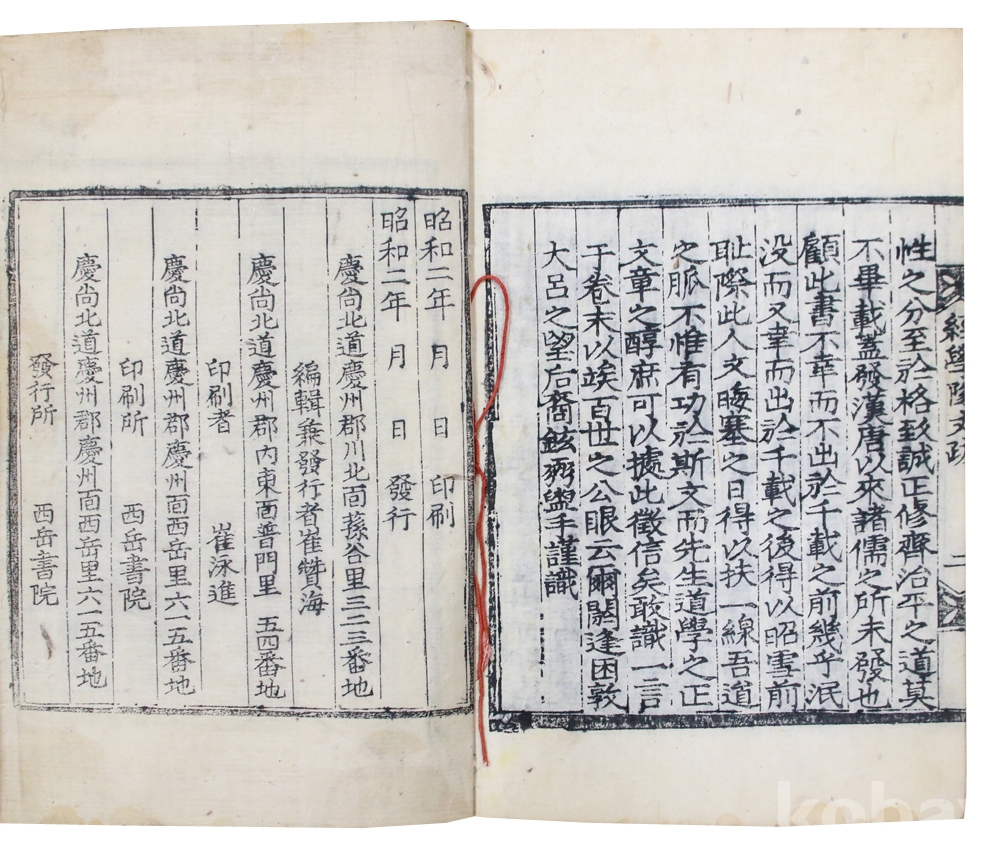 經學隊文跋
性之分至於格致誠正修齊治平之道莫
不畢載蓋發漢唐以來諸儒之所未發也
顧此書不幸而不出於千載之前幾乎泯
没而又幸而出於千載之後得以昭雪前
耻際此人文晦塞之日得以扶一線吾道
之脈不惟有功於斯文而先生道學之正
文章之醇庶可以據此徵信矣敢識一言
于卷末以竢百世之公眼云爾閼逢困敦
大呂之望后裔鉉弼盥手謹識
昭和二年 月 日 印刷
昭和二年 月 日 發行
慶尙北道慶州郡川北面蓀谷里三二三番地
編輯兼發行者崔贊海
慶尙北道慶州郡內東面普門里 五四番地
印刷者 崔泳進
慶尙北道慶州郡慶州面西岳里六一五番地
印刷所 西岳書院
慶尙北道慶州郡慶州面西岳里六一五番地
發行所 西岳書院
kobay